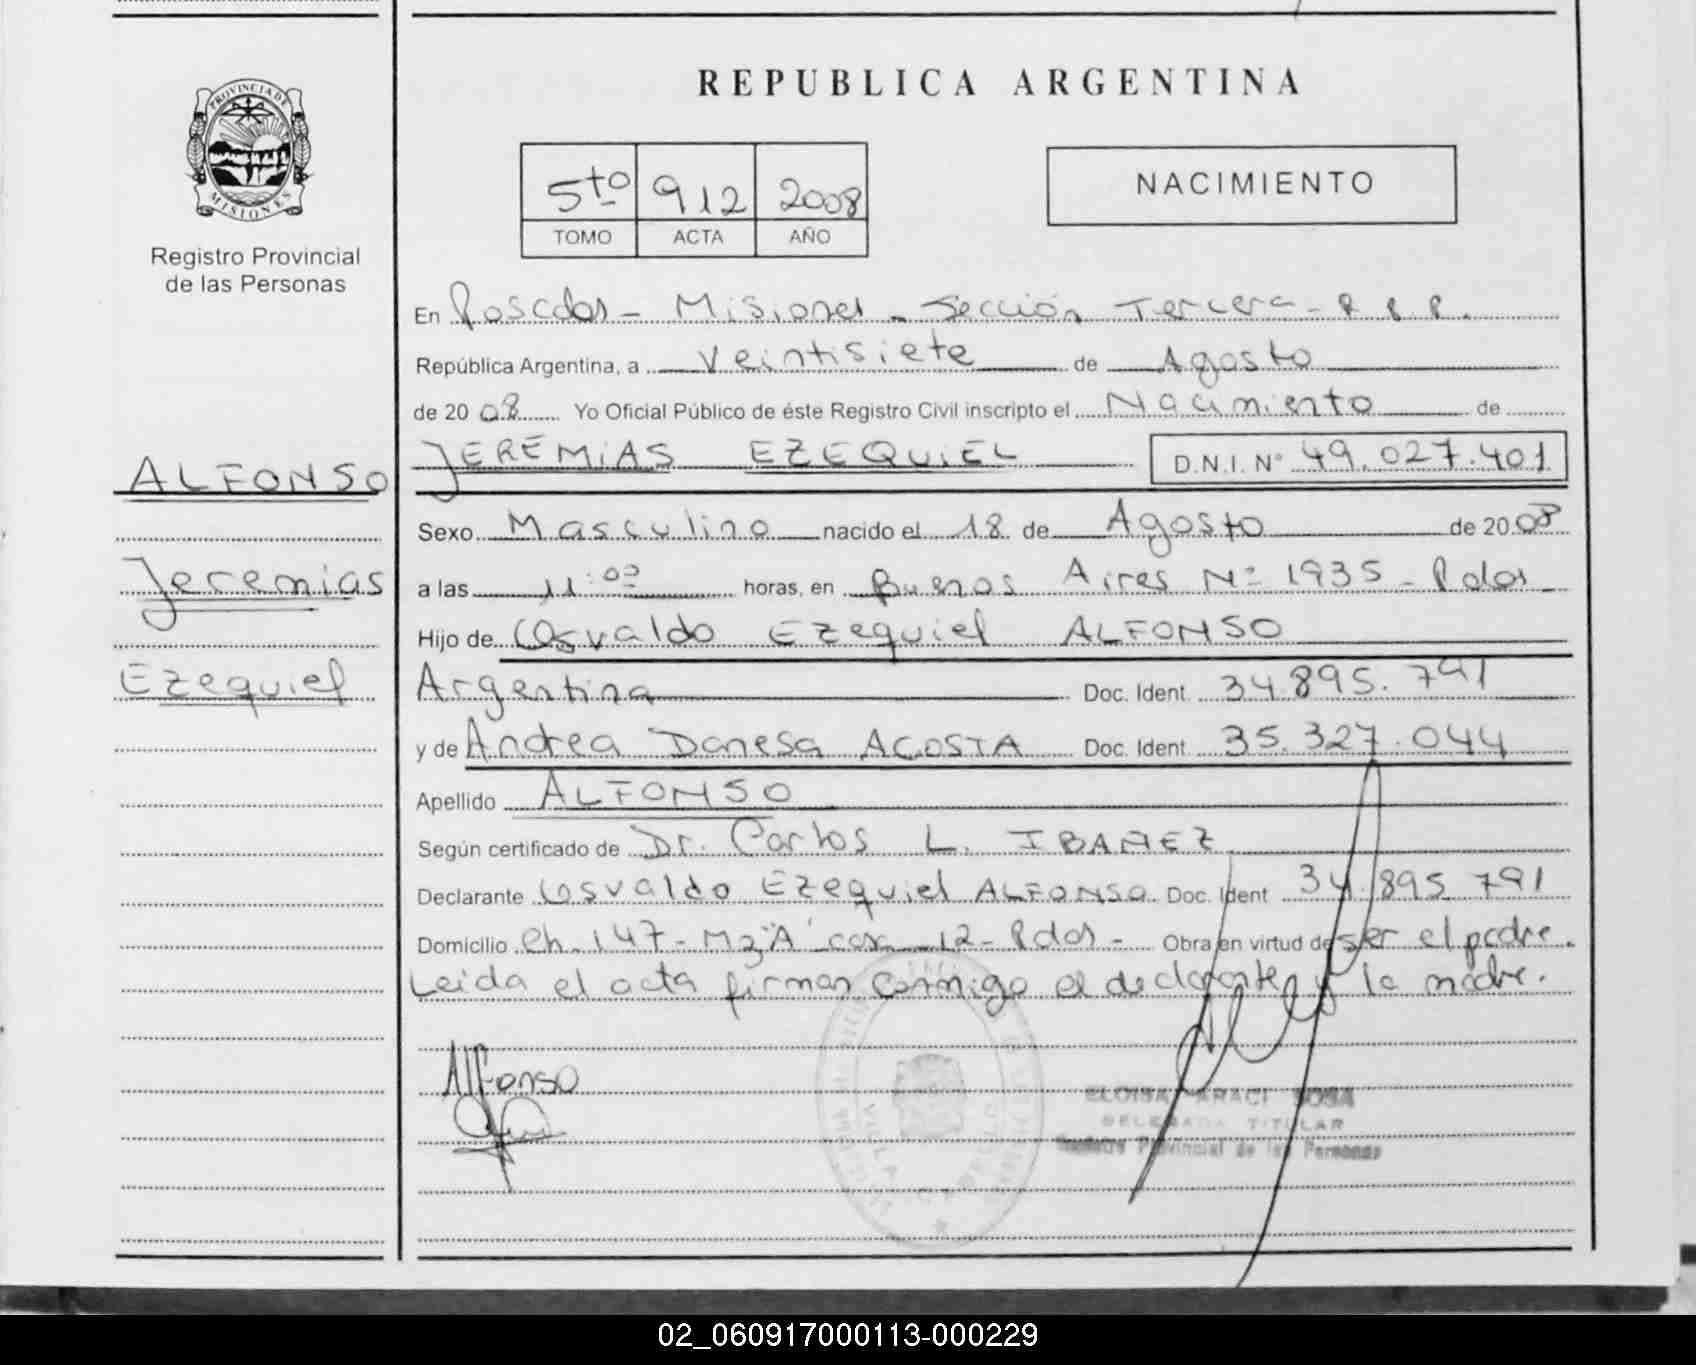 REPUBLICA ARGENTINA
PROVINCIA DE
MISIONES
Registro Provincial
de las Personas
5to 912 2008
TOMO ACTA AÑO
NACIMIENTO
En Posadas - Misiones - Sección Tercera - R.P.P.
República Argentina, a Veintisiete de Agosto
de 20 08 Yo Oficial Público de éste Registro Civil inscripto el Nacimiento de
JEREMIAS EZEQUIEL D.N.I. N° 49.027.401
ALFONSO
Jeremias
Ezequiel
Sexo Masculino nacido el 18 de Agosto de 20 08
a las 11:00 horas, en Buenos Aires Nº 1935 - Pdas
Hijo de Osvaldo Ezequiel ALFONSO
Argentina Doc. Ident. 34.895.791
y de Andrea Danesa ACOSTA Doc. Ident 35.327.044
Apellido ALFONSO
Según certificado de Dr. Carlos L. IBAÑEZ
Declarante Osvaldo Ezequiel ALFONSO Doc. Ident 34.895.791
Domicilio Ch. 147 - Mz "A" casa 12 - Pdas - Obra en virtud de ser el padre.
Leida el acta firman conmigo el declarante y la madre.
Alfonso
ELOISA ARACI SOSA
DELEGADA TITULAR
Registro Provincial de las Personas
VILLA CABELLO
02_060917000113-000229